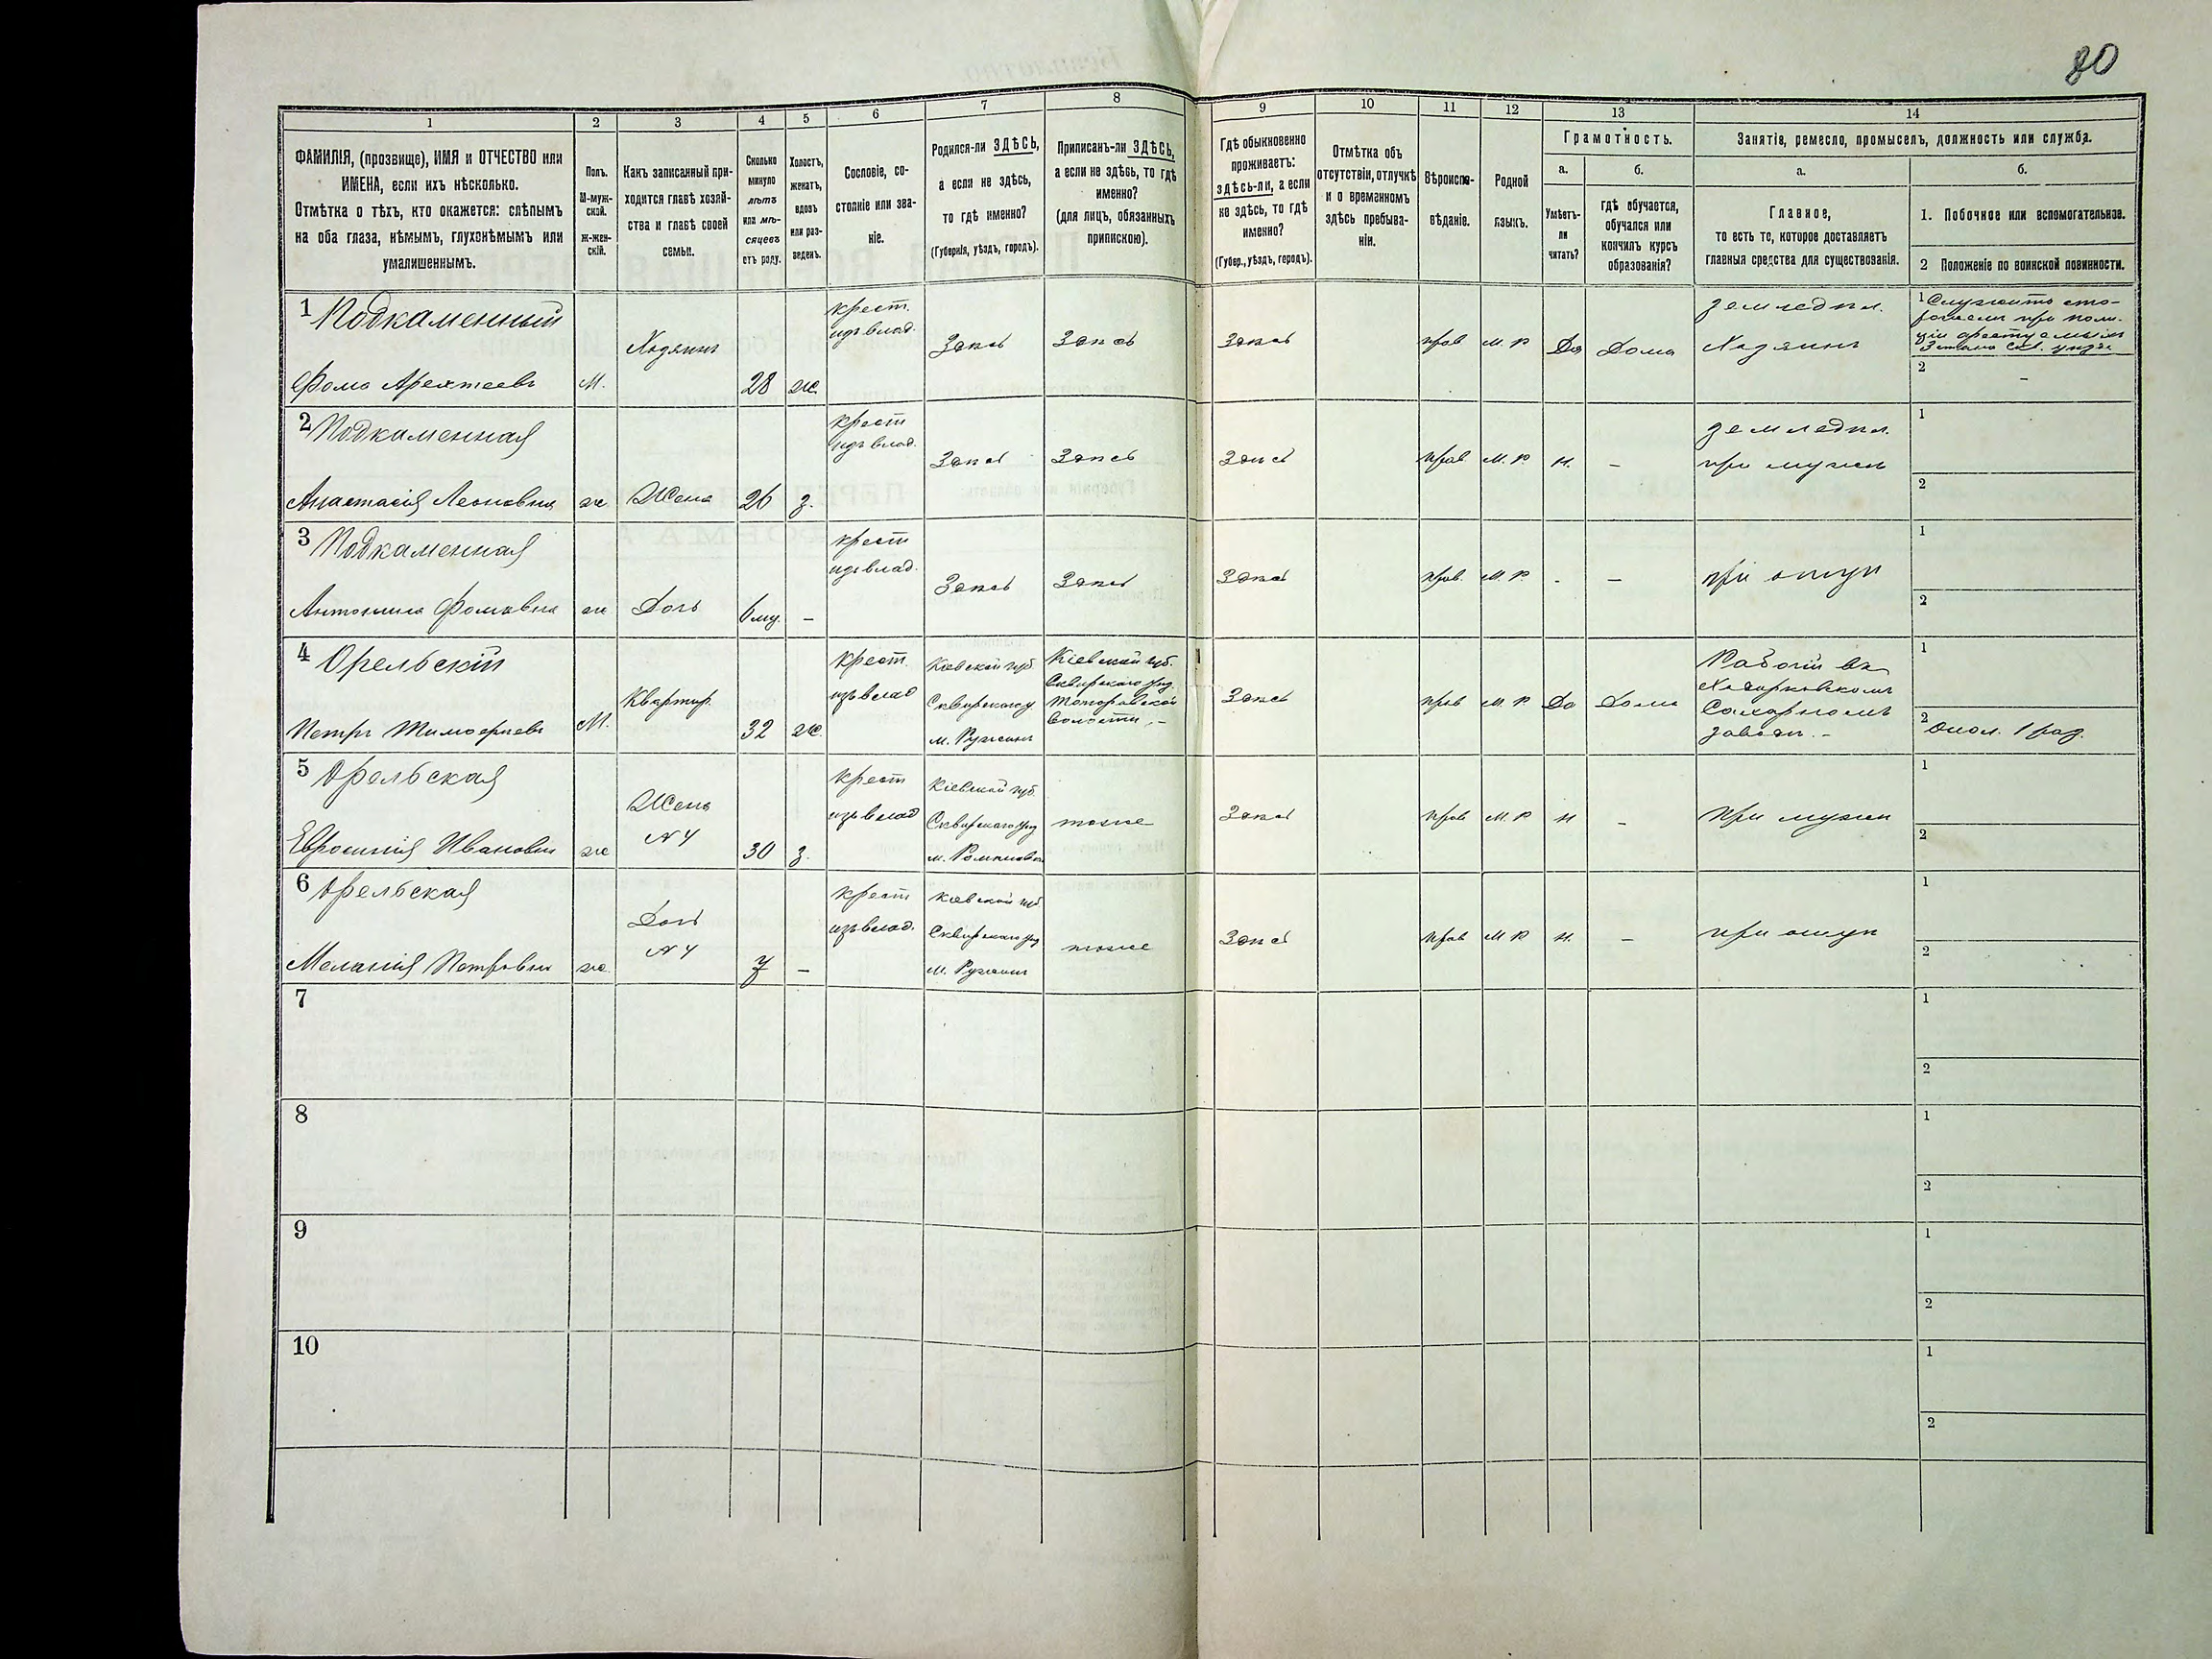 80
1
2
3
4
5
6
7
8
9
10
11
12
13
14
ФАМИЛІЯ, (прозвище), ИМЯ и ОТЧЕСТВО или
ИМЕНА, если ихъ нѣсколько.
Отмѣтка о тѣхъ, кто окажется: слѣпымъ
на оба глаза, нѣмымъ, глухонѣмымъ или
умалишеннымъ.
Полъ.
М-муж-
ской.
Ж-жен-
скій.
Какъ записанный при-
ходится главѣ хозяй-
ства и главѣ своей
семьи.
Сколько
минуло
лѣтъ
или мѣ-
сяцевъ
отъ роду.
Холостъ,
женатъ,
вдовъ
или раз-
веденъ.
Сословіе, со-
стояніе или зва-
ніе.
Родился-ли ЗДѢСЬ,
а если не здѣсь,
то гдѣ именно?
(Губернія, уѣздъ, городъ).
Приписанъ-ли ЗДѢСЬ,
а если не здѣсь, то гдѣ
именно?
(для лицъ, обязанныхъ
припискою).
Гдѣ обыкновенно
проживаетъ:
здѣсь-ли, а если
не здѣсь, то гдѣ
именно?
(Губер., уѣздъ, городъ).
Отмѣтка объ
отсутствіи, отлучкѣ
и о временномъ
здѣсь пребыва-
ніи.
Вѣроиспо-
вѣданіе.
Родной
языкъ.
Грамотность.
а.
Умѣетъ-
ли
читать?
б.
гдѣ обучается,
обучался или
кончилъ курсъ
образованія?
Занятіе, ремесло, промыселъ, должность или служба.
а.
Главное,
то есть то, которое доставляетъ
главныя средства для существованія.
б.
1. Побочное или вспомогательное.
2 Положеніе по воинской повинности.
1 Подкаменный
Фома
М.
Хозяинъ
28
ж.
крест.
изъ влад.
Здѣсь
Здѣсь
Здѣсь
прав
М. Р
Да
Дома
земледѣл.
Хозяинъ
1 Служитъ сто-
рожемъ при поли-
2 -
2 Подкаменная
Анастасія Леоновна
ж
Жена
26
з.
крест
изъ влад.
Здѣсь
Здѣсь
Здѣсь
прав.
М. Р.
н.
-
земледѣл.
при мужѣ
1
2
3 Подкаменная
Антонина Фомовна
ж
Дочь
6 мц.
-
крест
изъ влад.
Здѣсь
Здѣсь
Здѣсь
прав.
М. Р
-
-
при отцѣ
1
2
4 Орельскій
Петръ Тимофеевъ
М.
Квартир.
32
ж.
крест.
изъ влад
Кіевской губ
Сквирскаго у.
м. Ружинъ
Кіевской губ.
Сквирскаго уѣз.
волости. -
Здѣсь
прав
М. Р
Да
Дома
Рабочій въ
Ходорковскомъ
Сахарномъ
заводѣ. -
1
2 Опол. 1 раз.
5 Орельская
Евросинія Ивановна
ж
Жена
№ 4
30
з.
крест
изъ влад
Кіевской губ.
Сквирскаго уѣз
тоже
Здѣсь
прав
М. Р
н
-
При мужѣ
1
2
6 Орельская
Меланія Петровна
ж.
Дочь
№ 4
7
-
крест
изъ влад.
Кіевской губ.
Сквирскаго уѣз
м. Ружинъ
тоже
Здѣсь
прав
М Р
н.
-
при отцѣ
1
2
7
1
2
8
1
2
9
1
2
10
1
2